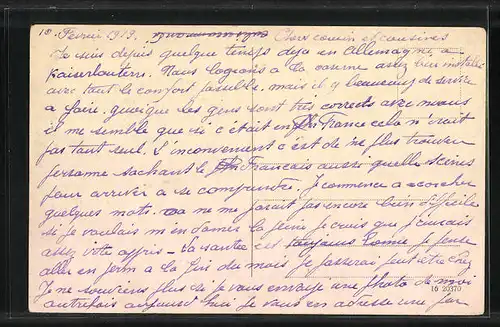 10 Fevrier 1919. Chers cousin et cousines
Je suis depuis quelque temps deja en Allemagne, a
Kaiserlautern. Nous logeons a la caserne assez bien installé
avec tout le confort possible. mais il y beaucoup de service
a faire, quoique les gens sont tres corrects avec nous
il me semble que si c'était en France cela n'irait
pas tout seul. L'inconvenient c'est de ne plus trouver
personne sachant le Francais aussi quelle scènes
pour arriver a se comprendre. Je commence a ecorcher
quelques mots. Ca ne me parait pas encore bien difficile
si je voulais m'en donner la peine je crois que j'aurais
assez vite appris - La santée est toujours bonne je pense
aller en perm a la fin du mois je passerai peut être chez
Je ne souviens plus si je vous envoye une photo de moi
autrefois aujourd'hui je vous en adresse une par
16 20370